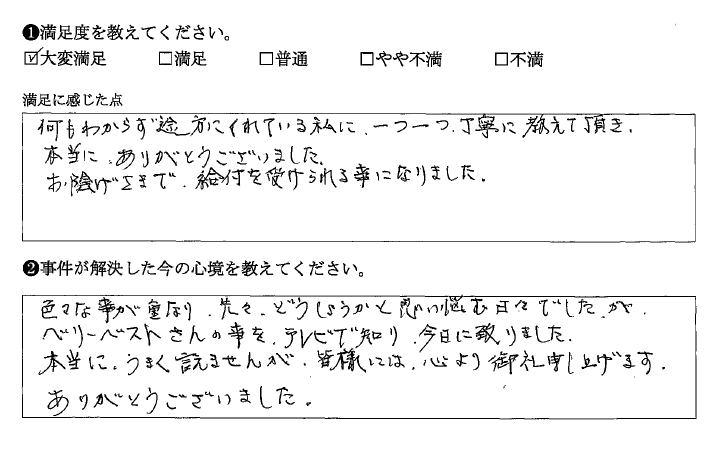 ❶満足度を教えてください。
☑大変満足 □満足 □普通 □やや不満 □不満
満足に感じた点
何もわからず途方にくれている私に、一つ一つ、丁寧に教えて頂き、
本当に、ありがとうございました。
お陰げさまで、給付を受けられる事になりました。
❷事件が解決した今の心境を教えてください。
色々な事が重なり、先々、どうしょうかと思い悩む日々でしたが、
ベリーベストさんの事を、テレビで知り、今日に致りました。
本当に、うまく言えませんが、皆様には、心より御礼申し上げます。
ありがとうございました。